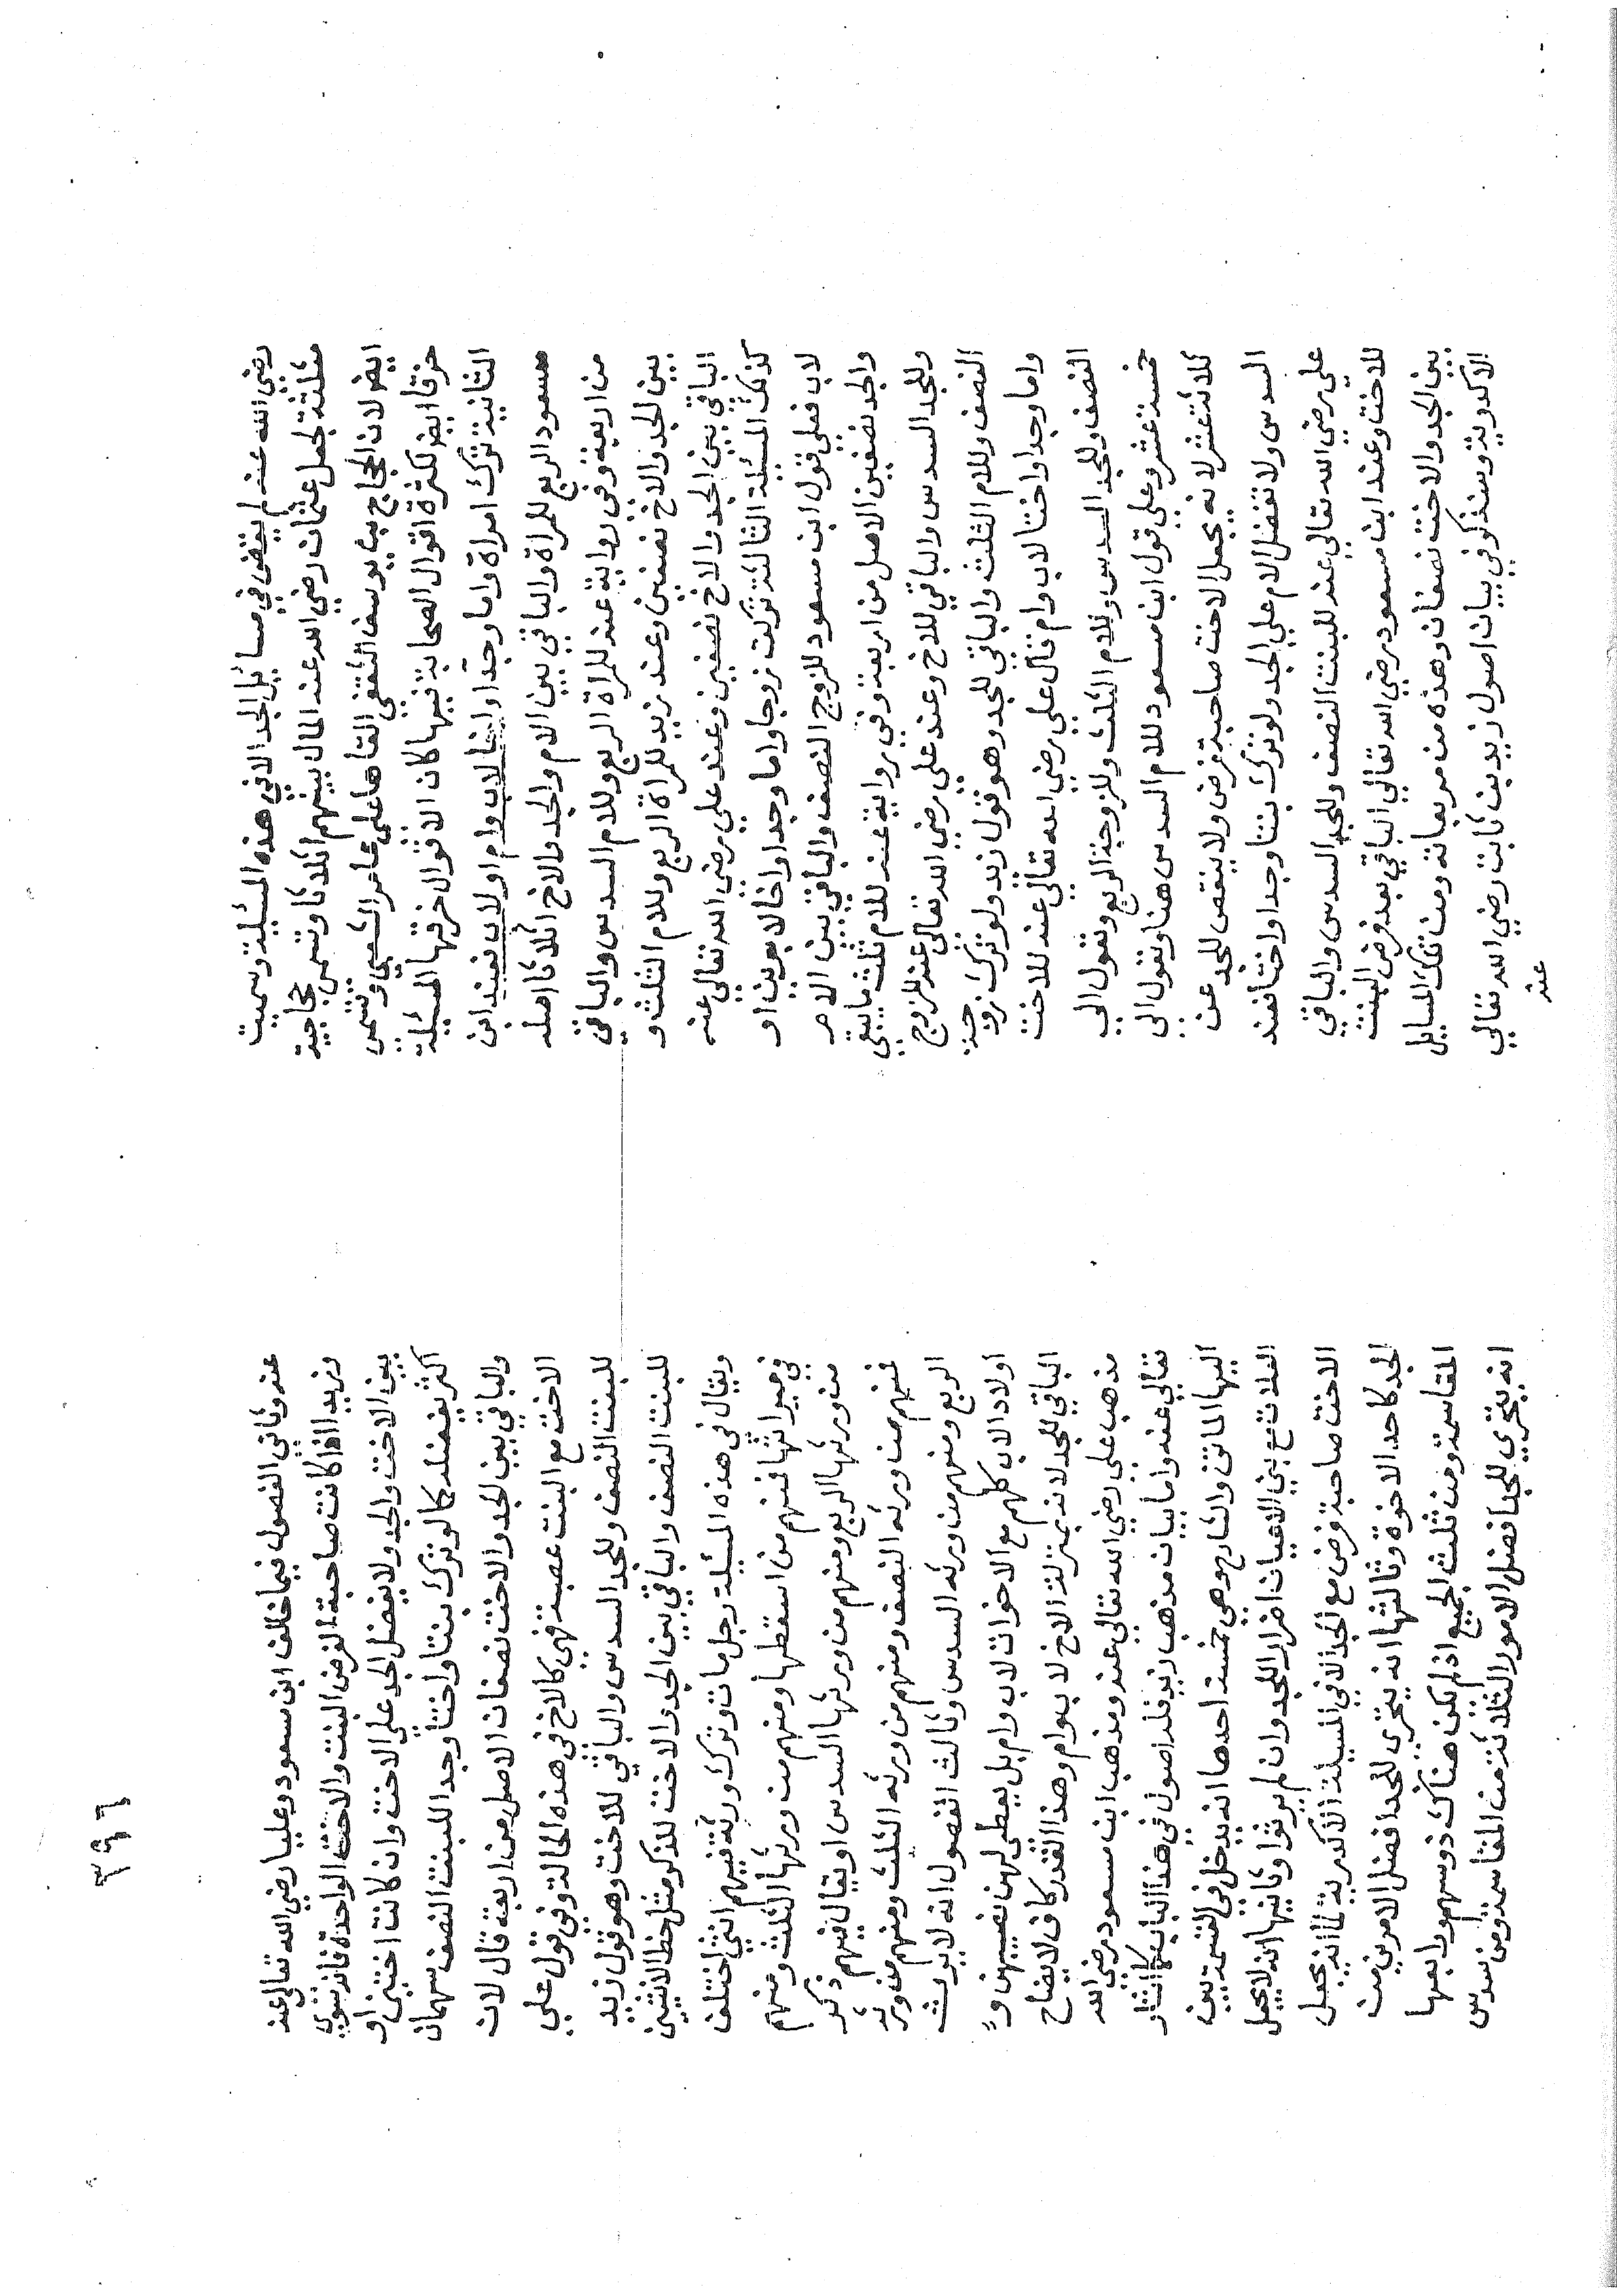 رضي الله عنه لم يقض في مسائل الجد الا في هذه المسئلة وسميت
مثلثة لجعل عثمان رضي الله عنه المال بينهم اثلاثا وتسمى حجاجية
ايضر لان الحجاج بن يوسف الثقفي القاها على عامر الشعبي وتسمى
خرقا ايضر لكثرة اقوال الصحابة فيها كان الاقوال خرقتها المسئلة
الثانية ترك امراة واما وجدا واخا لاب وام او لاب فعند ابن
مسعود الربع للمراة والباقي بين الام والجد والاخ اثلاثا اصله
من اربعة وفي رواية عنه للمراة الربع وللام السدس والباقي
بين الجد والاخ نصفين وعند زيد للمراة الربع وللام الثلث و
الباقي بين الجد والاخ نصفين وعند علي رضي الله تعالى عنه
كذلك المسئلة الثالثة تركت زوجا واما وجدا واخا لابوين او
لاب فعلى قول ابن مسعود للزوج النصف والباقي بين الام
والجد نصفين الاصل من اربعة وفي رواية عنه للام ثلث ما يبقي
وللجد السدس والباقي للاخ وعند علي رضي الله تعالى عنه للزوج
النصف وللام الثلث والباقي للجد وهو قول زيد ولو ترك زوجة
واما وجدا واختا لاب وام قال علي رضي الله تعالى عنه للاخت
النصف وللجد السدس وللام الثلث وللزوجة الربع وتعول الى
خمسة عشر وعلى قول ابن مسعود للام السدس هنا وتعول الى
ثلاثة عشر لانه يجعل الاخت صاحبة فرض ولا ينقص للجد عن
السدس ولا تفضل الام على الجد ولو ترك بنتا وجدا واختا فعند
علي رضي الله تعالى عنه للبنت النصف وللجد السدس والباقي
للاخت وعند ابن مسعود رضي الله تعالى الباقي بعد فرض البنت
بين الجد والاخت نصفان وهذه من مربعاته ومن تلك المسايل
الاكدرية وسنذكر في بيان اصول زيد بن ثابت رضي الله تعالى
عنه
عنه وثاني الفصول فيما خالف ابن مسعود وعليا رضي الله تعالى عنه
وزيد اذا كانت صاحبة الفرض البنت والاخت الواحدة فانه يسوي
بين الاخت والجد ولا يفضل الجد على الاخت وان كانت اختين او
اكثر يفضله كما لو ترك بنتا واختا وجدا للبنت النصف سهمان
والباقي بين الجد والاخت نصفان الاصل من اربعة قال لان
الاخت مع البنت عصبة فهي كالاخ في هذه الحالة وفي قول علي
للبنت النصف وللجد السدس والباقي للاخت وهو قول زيد
للبنت النصف والباقي بين الجد والاخت للذكر مثل حظ الانثيين
ويقال في هذه المسئلة رجل مات وترك ورثة فيهم انثى اختلف
في ميراثها فمنهم من اسقطها ومنهم من ورثها الثلث ومنهم
من ورثها الربع ومنهم من ورثها السدس او يقال فيهم ذكر
فمنهم من ورثه السدس ومنهم من ورثه الثلث ومنهم من ورثه
الربع ومنهم من ورثه النصف وثالث الفصول انه لا يورث
اولاد الاب كلهم مع الاخوات لاب وام بل يعطي لهن نصيبهن و
الباقي للجد لانه بمنزلة الاخ لا بوام وهذا القدر كاف لايضاح
مذهب علي رضي الله تعالى عنه ومذهب ابن مسعود رضي الله
تعالى عنه واما بيان مذهب زيد فله اصول في هذا الباب كما اشار
اليها الماتن والشارح وهي خمسة احدها انه يدخل في القسمة بين
العلات مع بني الاعيان اضرارا للجد وان لم يرثوا وثانيها انه لا يجعل
الاخت صاحبة فرض مع الجد الا في المسيلة الاكدرية لما انه يجعل
الجد كاحد الاخوة وثالثها انه يتحرى للجد افضل الامرين من
المقاسمة ومن ثلث الجميع اذ لم يكن هناك ذو سهم ورابعها
انه يتحري للجد افضل الامور الثلاثة من المقاسمة ومن سدس
٣٩٦